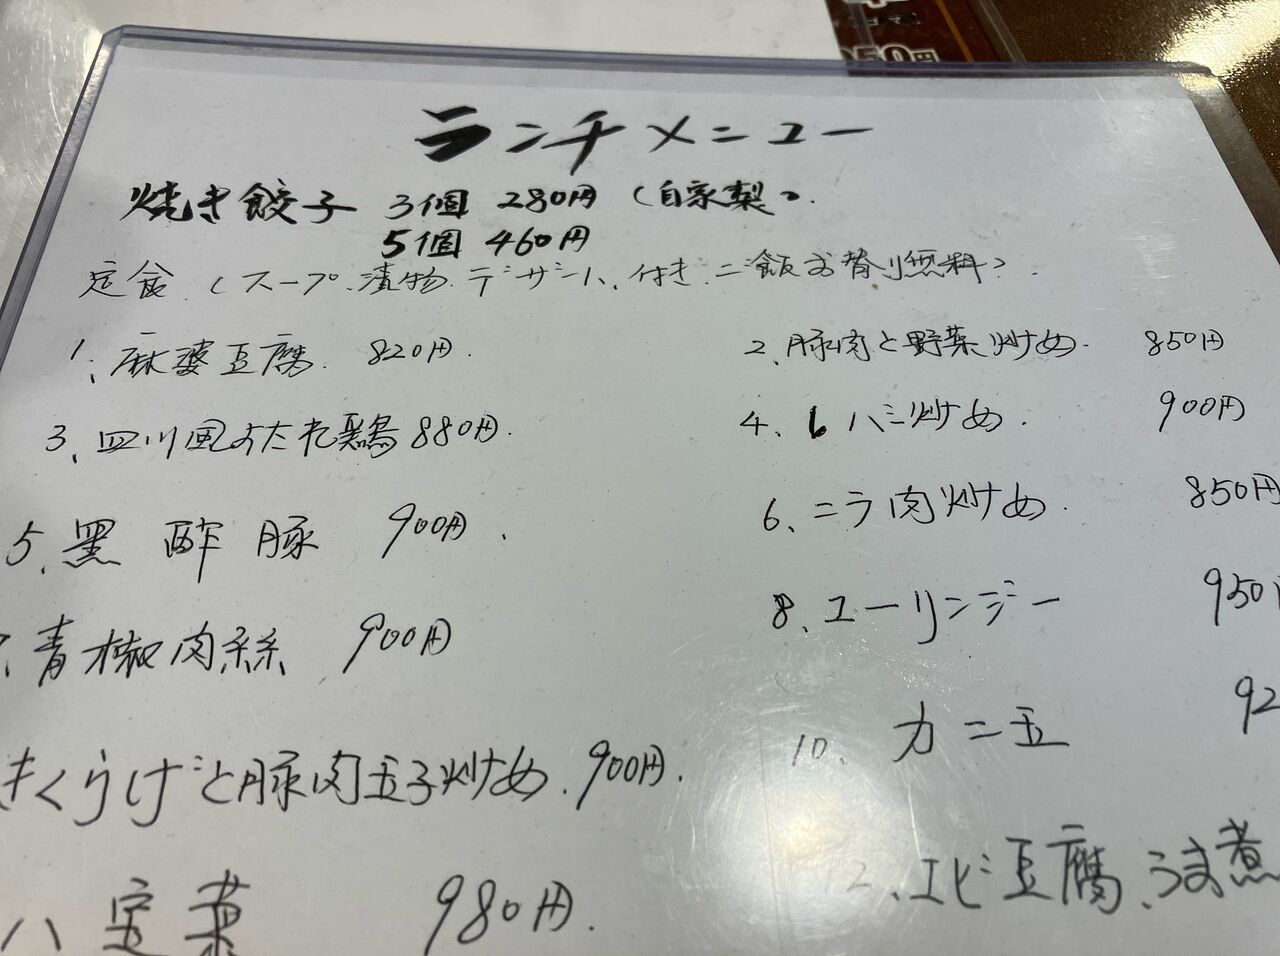 50円
ランチメニュー
焼き餃子 3個 280円 (自家製)
5個 460円
定食 (スープ.漬物.デザート、付き.ご飯お替り無料)
1、麻婆豆腐. 820円.
2、豚肉と野菜炒め. 850円
3、四川風よだれ鶏 880円.
4. ハニ炒め. 900円
5、黒酢豚 900円.
6、ニラ肉炒め. 850円
、青椒肉絲 900円
8、ユーリンジー 950
きくらげと豚肉玉子炒め. 900円.
10. カニ玉 92
ハ 定菜 980円.
2、エビ豆腐、うま煮